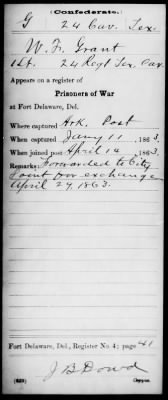 Confederate.
G 24 Cav. Tex.
W. Fr. Grant
24 Regt Tex. Cav.
Appears on a register of
Prisoners of War
at Fort Delaware, Del.
Where captured Ark. Post
When captured Jany 11, 1863.
When joined post April 14, 1863.
Remarks: Forwarded to City
Point for exchange
April 29, 1863.
Fort Delaware, Del., Register No. 4; page 41
J B Dowd
(639) Copyist.